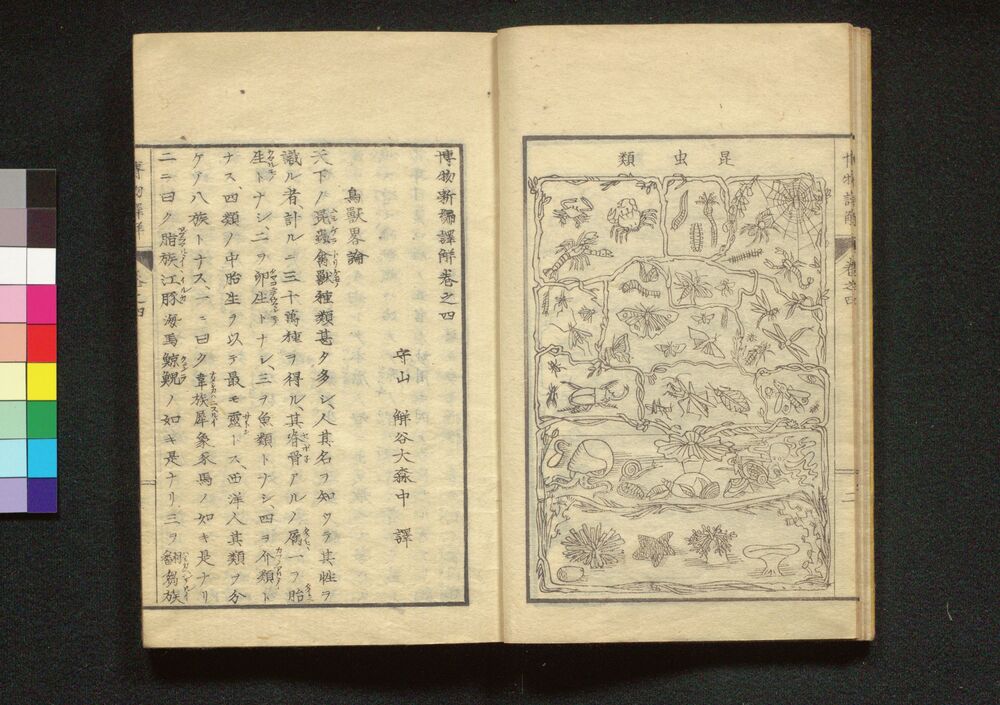 昆虫類
博物新編譯解巻之四
守山 觧谷大森中 譯
鳥獸畧論
天下ノ昆蟲禽獸種類甚タ多シ人其名ヲ知ツテ其性ヲ
識ル者計ルニ三十萬種ヲ得ル其脊骨アルノ属一ヲ胎
生トナシ、二ヲ卵生トナシ、三ヲ魚類トナシ、四ヲ介類ト
ナス、四類ノ中胎生ヲ以テ最モ靈トス、西洋人其類ヲ分
ケテ八族トナス一ニ曰ク韋族犀象豕馬ノ如キ是ナリ
二ニ曰ク脂族江豚海馬鯨鯢ノ如キ是ナリ、三ヲ翻芻族